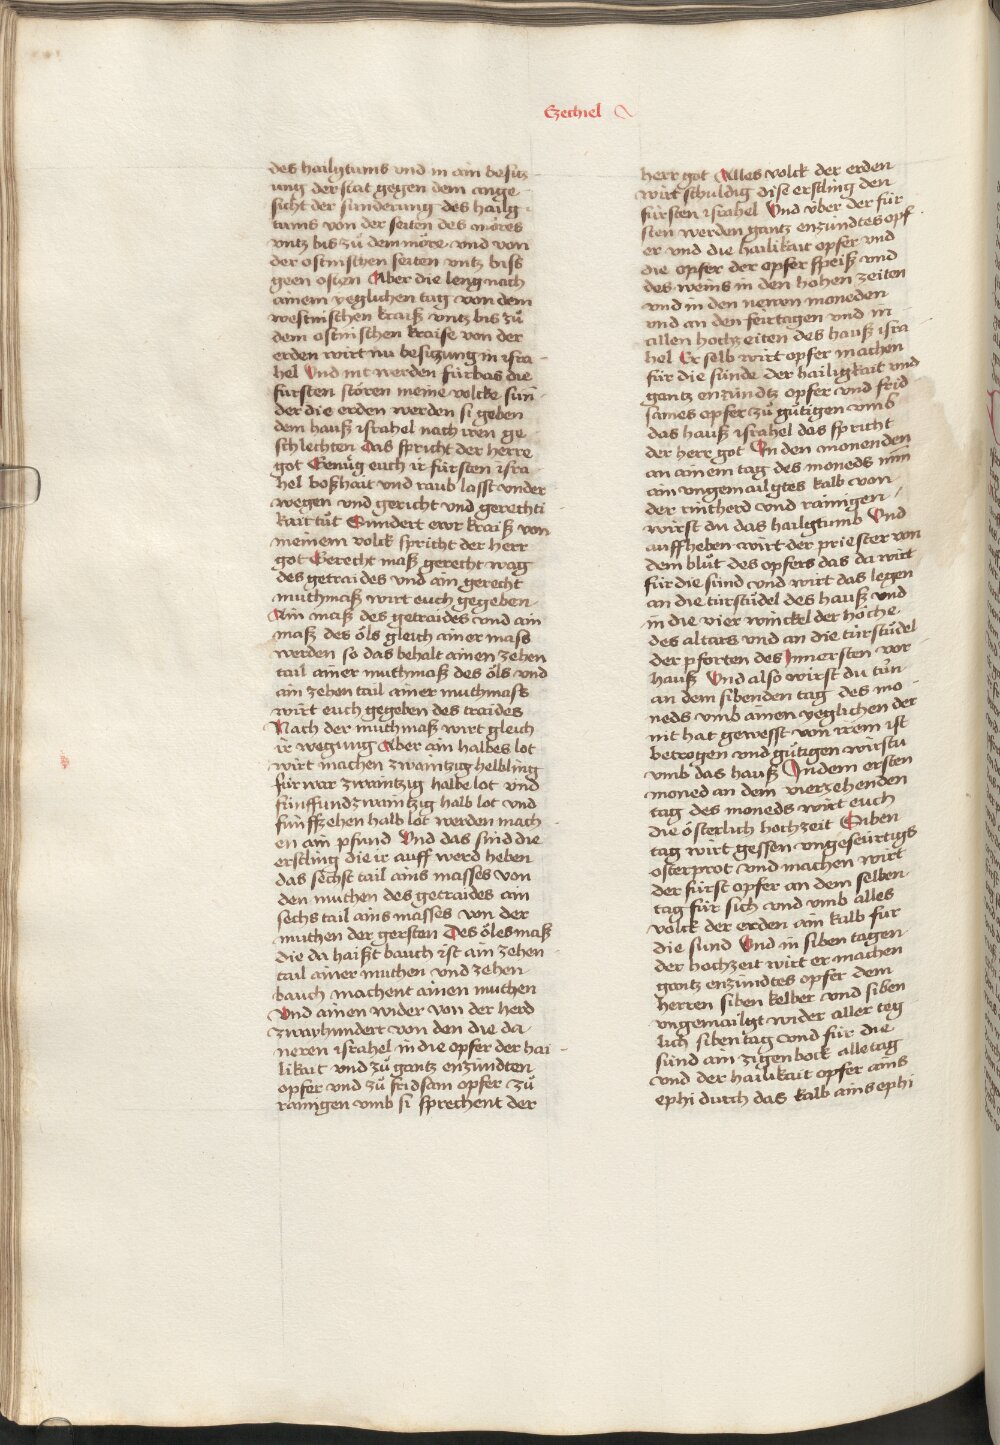 Ezechiel
des hailgtums vnd in ain besitz
ung der stat gegen dem ange
sicht der sunderung des hailg
tums von der seiten des mőres
vntz bis zů dem mőre vnd von
der ostnischen seiten vntz biss
geen osten Aber die leng nach
ainem yeglichen tag von dem
westnischen kraiß vntz bis zů
dem ostnischen kraise von der
erden wirt nu besitzung in isra
hel Vnd nit werden fürbas die
fürsten stőren meine volcke sun
der die erden werden si geben
dem hauß israhel nach iren ge
schlechten Das spricht der herre
got Genůg euch ir fürsten isra
hel boßhait vnd raub lasst vnder
wegen vnd gericht vnd gerechti
kait tůt Sundert ewr kraiß von
meinem volck spricht der herr
got Gerecht maß gerecht wag
des getraides vnd ain gerecht
muthmaß wirt euch gegeben
Ain maß des getraides vnd ain
maß des őls gleich ainer mass
werden so das behalt ainen zehen
tail ainer muthmaß des őls vnd
ain zehen tail ainer muthmass
wirt euch gegeben des traides
Nach der muthmaß wirt gleich
ir wegung Aber ain halbes lot
wirt machen zwaintzug helbling
fürwar zwaintzig halbe lot vnd
fünffundzwaintzig halb lot vnd
fünffzehen halb lot werden mach
en ain pfund Vnd das sind die
erstling die ir auff werd heben
das sechst tail ains masses von
den muthen des getraides ain
sechs tail ains masses von der
muthen der gersten Des őles maß
die da haißt bauch ist ain zehen
tail ainer muthen vnd zehen
bauch machent ainen muthen
Vnd ainen wider von der herd
zwayhundert von den die da
neren israhel in die opfer der hai
likait vnd zů gantz enzündten
opfer vnd zů fridsam opfer zů
rainigen vmb si sprechent der
herr got Alles volck der erden
wirt schuldig dise erstling den
fürsten israhel Vnd über der für
sten werden gantz enzündtes opf
er vnd die hailikait opfer vnd
die opfer der opfer speiß vnd
des weins in den hohen zeiten
vnd in den newen moneden
vnd an den feirtagen vnd in
allen hochzeiten des hauß isra
hel Er selb wirt opfer machen
für die sünde der hailigkait vnd
gantz enzündtz opfer vnd frid
sames opfer zů gůtigen vmb
das hauß israhel das spricht
der herr got In den monenden
an ainem tag des moneds
ain vngemailgtes kalb von
der rintherd vnd rainigen
wirst du das hailgtumb Vnd
auffheben wirt der priester von
dem blůt des opfers das da wirt
für die sünd vnd wirt das legen
an die türstüdel des hauß vnd
in die vier winckel der hőche
des altars vnd an die türstüdel
der pforten des Innersten vor
hauß Vnd also wirst du tůn
an dem sibenden tag des mo
neds vmb ainen yeglichen der
nit hat gewesst von irem ist
betrogen vnd gůtigen wirstu
vmb das hauß In dem ersten
moned an dem vierzehenden
tag des moneds wirt euch
die ősterlich hochzeit Siben
tag wirt gessen vngeseürtigs
osterprot vnd machen wirt
der fürst opfer an dem selben
tag für sich vnd vmb alles
volck der erden ain kalb für
die sünd Vnd in siben tagen
der hochzeit wirt er machen
gantz enzündtes opfer dem
herren siben kelber vnd siben
vngemailgt wider aller teg
lich siben tag vnd für die
sünd ain zigenbock alle tag
vnd der hailikait opfer ains
ephi durch das kalb ains ephi